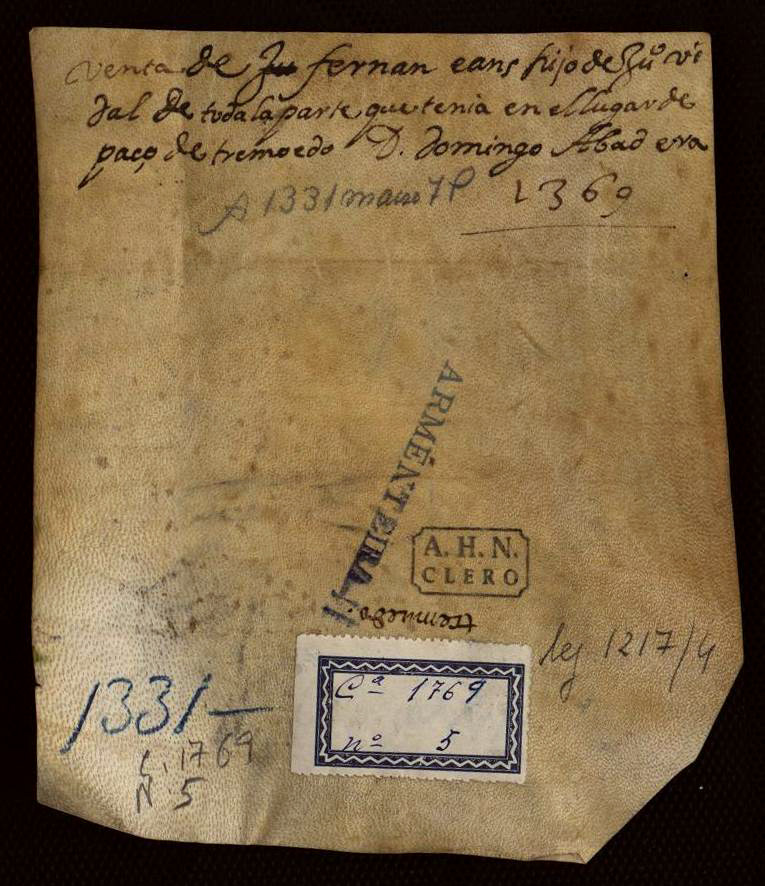 venta de Ju fernan eans fijo de Juº vi
dal de toda la parte que tenia en el lugar de
paço de tremoedo D. domingo Abad era
A 1331 março 7
1369
ARMENTEIRA
A. H. N.
CLERO
tremuedo
leg 1217/4
Cª 1769
nº 5
1331
C. 1769
N. 5